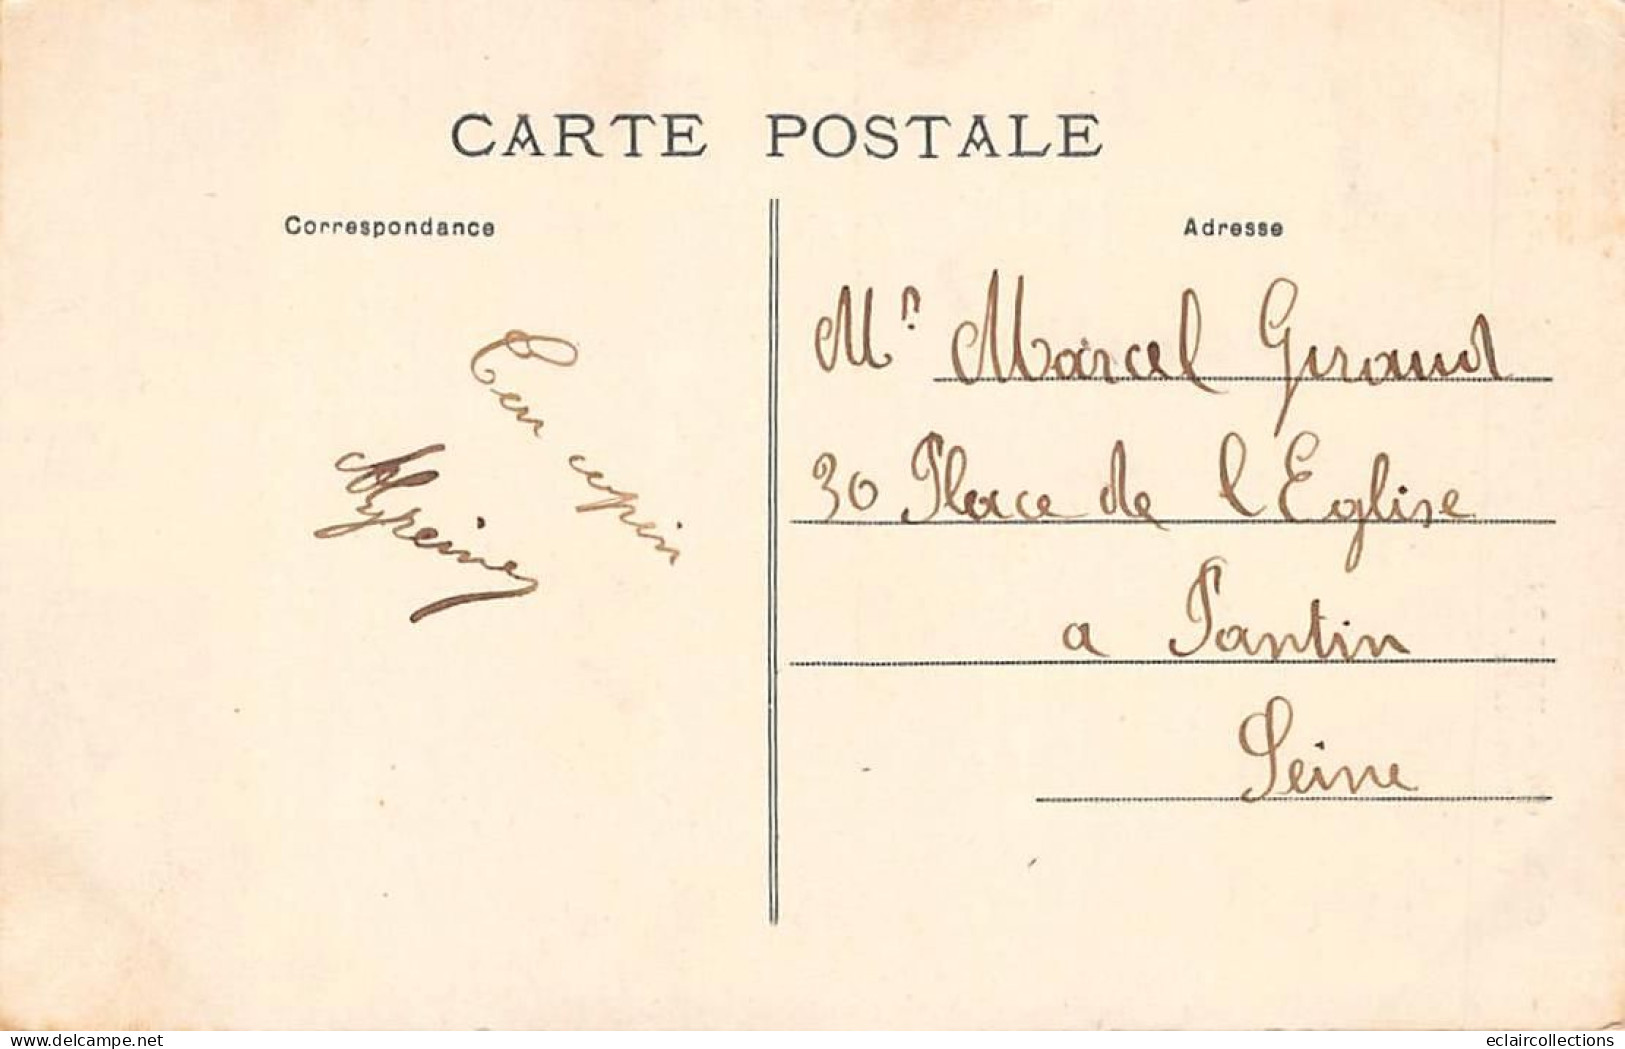 CARTE POSTALE
Correspondance
Adresse
Ton copain
Mr Marcel Giraud
30 Place de l Eglise
a Pantin
Seine
delcampe.net
eclaircollections